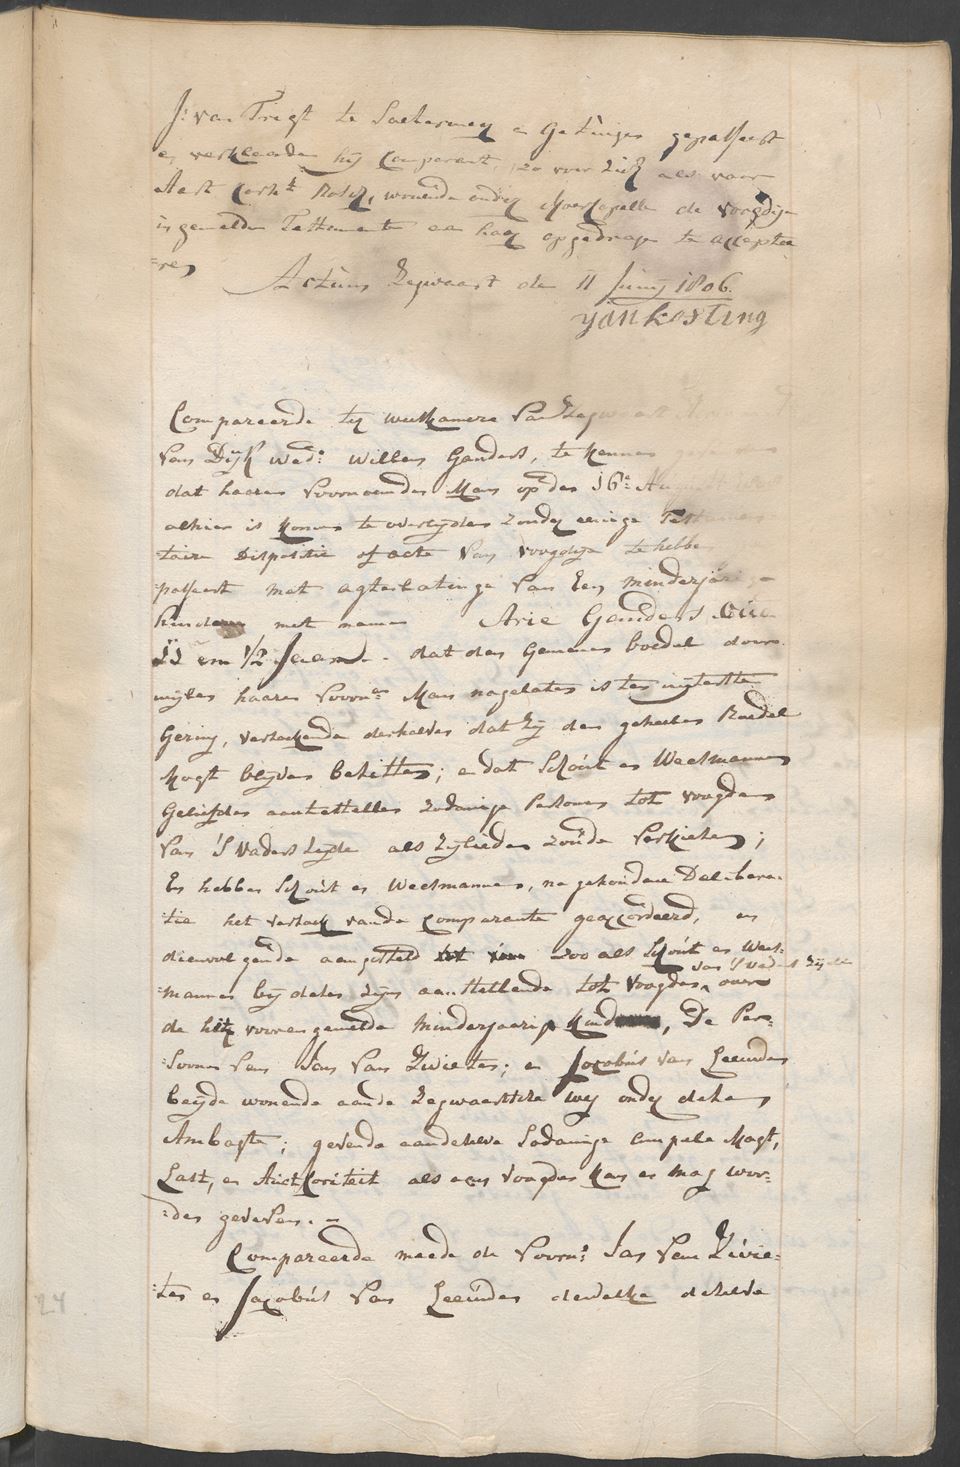 J: van Tregt te Soetermeer en Getuigen gepasseert
en verklaarden hij Comparant, zo voor zich als voor
Aart Corns Rotsz, wonende onder Moercapelle de voogdije
in gemelden Testamente aan haar opgedragen te acceptee
=ren
Actum Zegwaart den 11 Junij 1806.
yan kosting
Compareerde ter weeskamere van Zegwaart
van Dijk Wede: Willem Ganders, te kennen
dat haaren voornoemden Man op den 16e: August
alhier is komen te overlyden zonder eenige Testamen
taire Dispositie of acte van voogdije te hebben
passeert met agterlatinge van Een minderjarige
kinderen met name Arie Ganders
11 en 1/2 Jaaren. dat den Gemenen boedel door
wylen haaren voorn: Man nagelaten is ten uytersten
Gering, versoekende derhalven dat zy den geheelen Boedel
mogt blyven besitten; en dat Schout en Weesmannen
Geliefden aantestellen zodanige Persoonen tot voogden
van 'S vaders zyde als zylieden zoude verkiesen;
En hebben Schout en Weesmannen, na gehoudene Delibera=
tie het versoek vande Comparante geaccordeerd, en
dienvolgende aangesteld zoo als Schout en Wees=
van 's vaders zyde
mannen by desen zyn aanstellende tot voogden over
de hier vooren gemelde minderjaarige kind, De Per=
soonen van Jan van Zwieten; en Jacobus van Leeuden
beyde wonende aande Zegwaartse weg onder desen
Ambagte; gevende aandeselve sodanige ampele Magt,
Last, en Authoriteit als een voogden kan en mag wor=
=den gegeven. =
Compareerde meede de voorn: Jan van Zwie=
=ten en Jacobus van Leeuden dewelke deselve
24